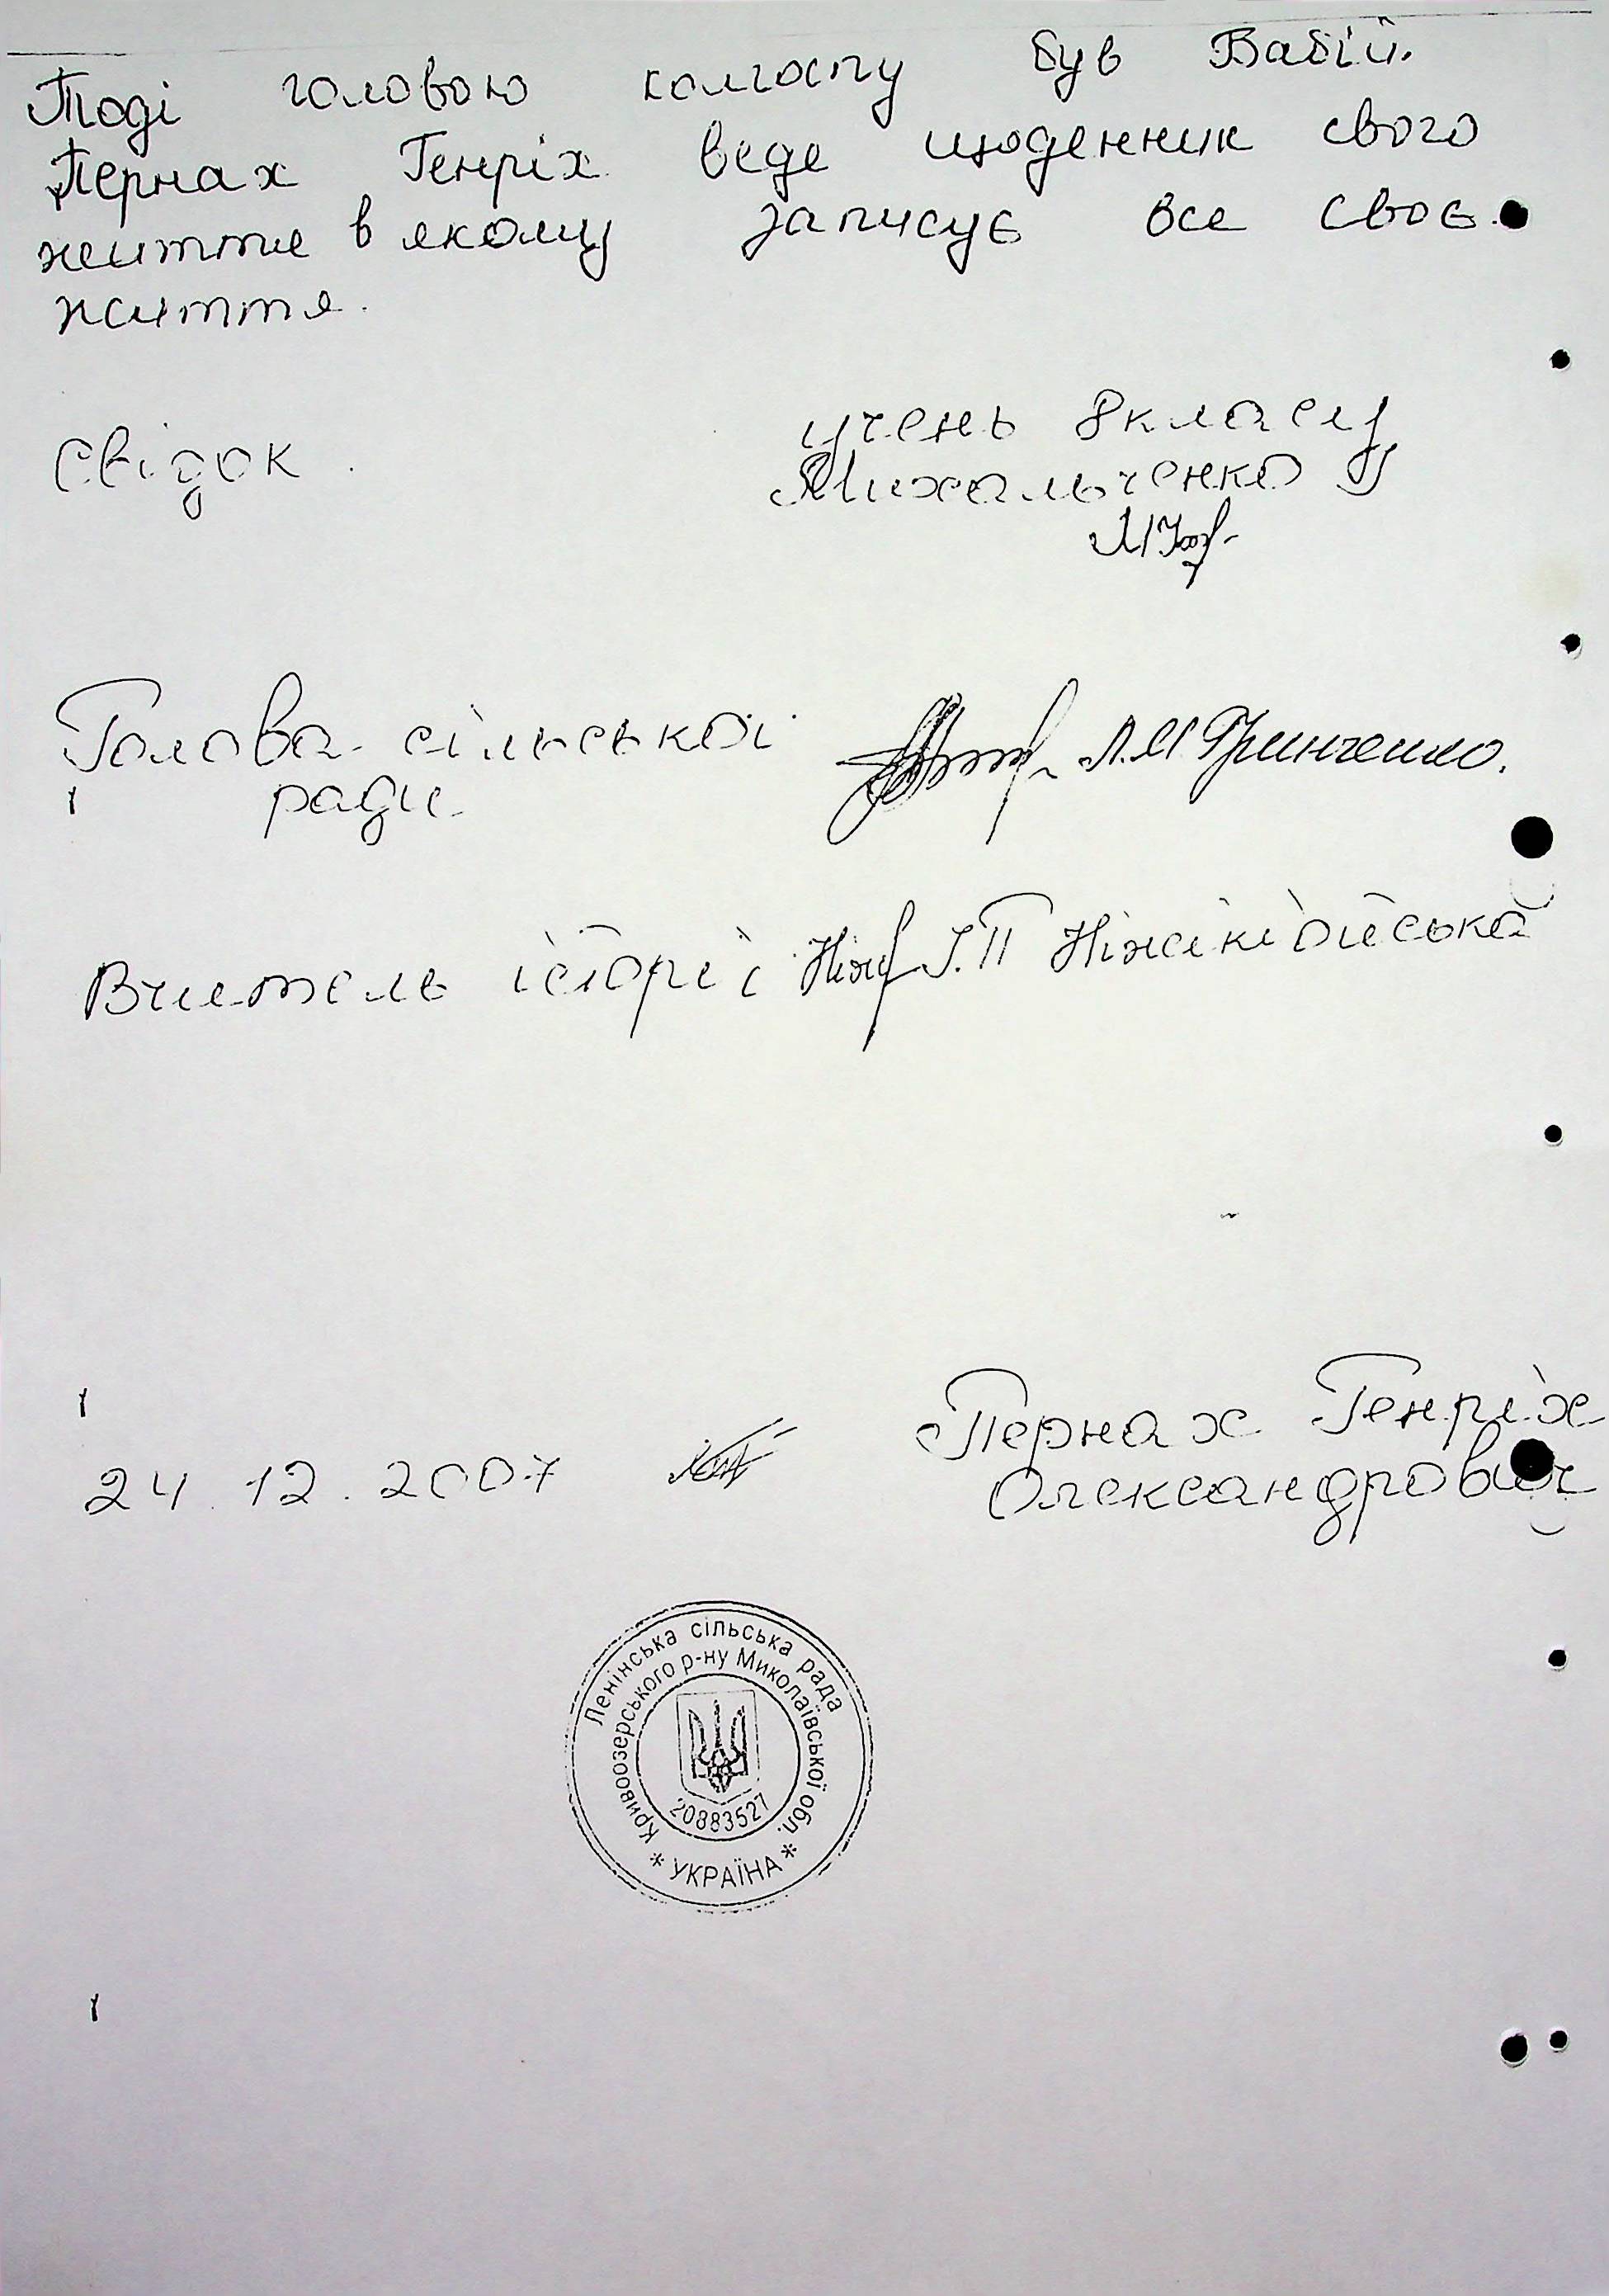 Тоді головою колгоспу був Бабій.
Пернах Генріх веде щоденник свого
життя в якому записує все своє
життя.
Свідок
учень 8 класу
Михальченко
Голова сільської
ради
Л.М Гринченко.
Вчитель історії І.П
24.12.2007
Пернах Генріх
Олександрович
Ленінська сільська рада
Кривоозерського р-ну Миколаївської обл.
20883527
* УКРАЇНА *